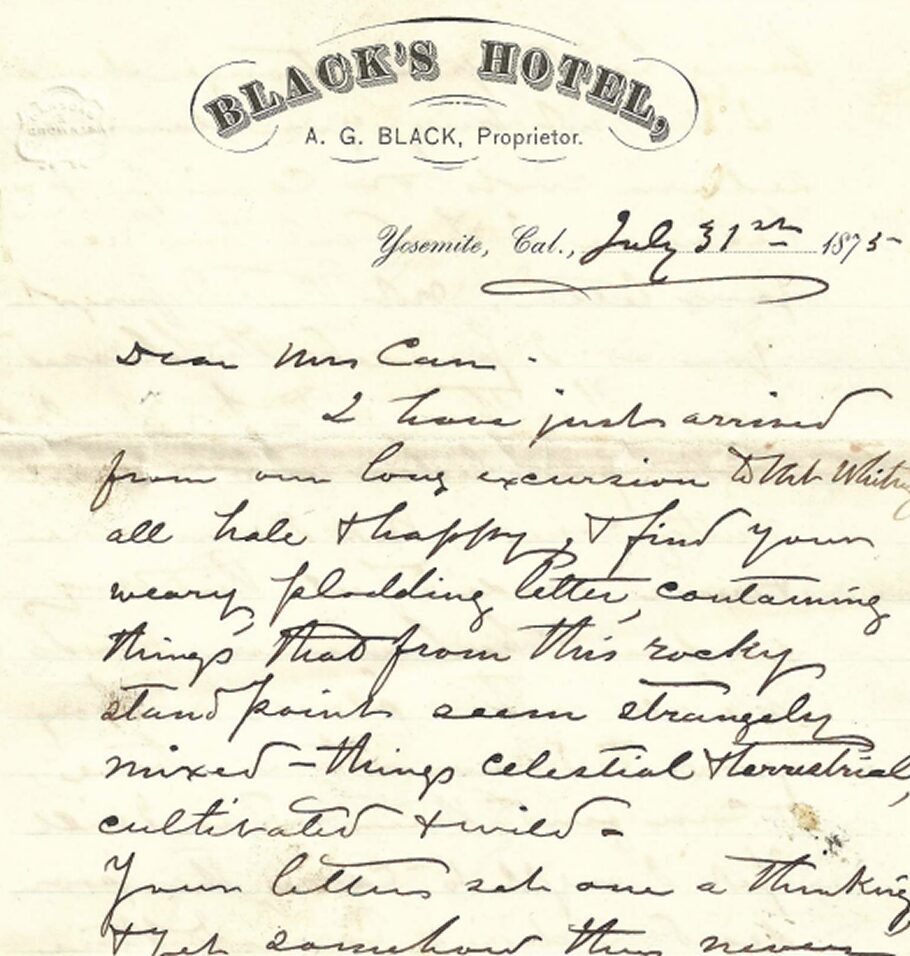 BLACK'S HOTEL,
A. G. BLACK, Proprietor.
Yosemite, Cal., July 31st 1875
Dear Mrs Carr -
I have just arrived
from our long excursion to Mt Whitney
all hale & happy, & find your
weary plodding letter, containing
things that from this rocky
standpoint seem strangely
mixed - things celestial & terrestrial,
cultivated & wild -
Your letters set one a thinking
& yet somehow they never